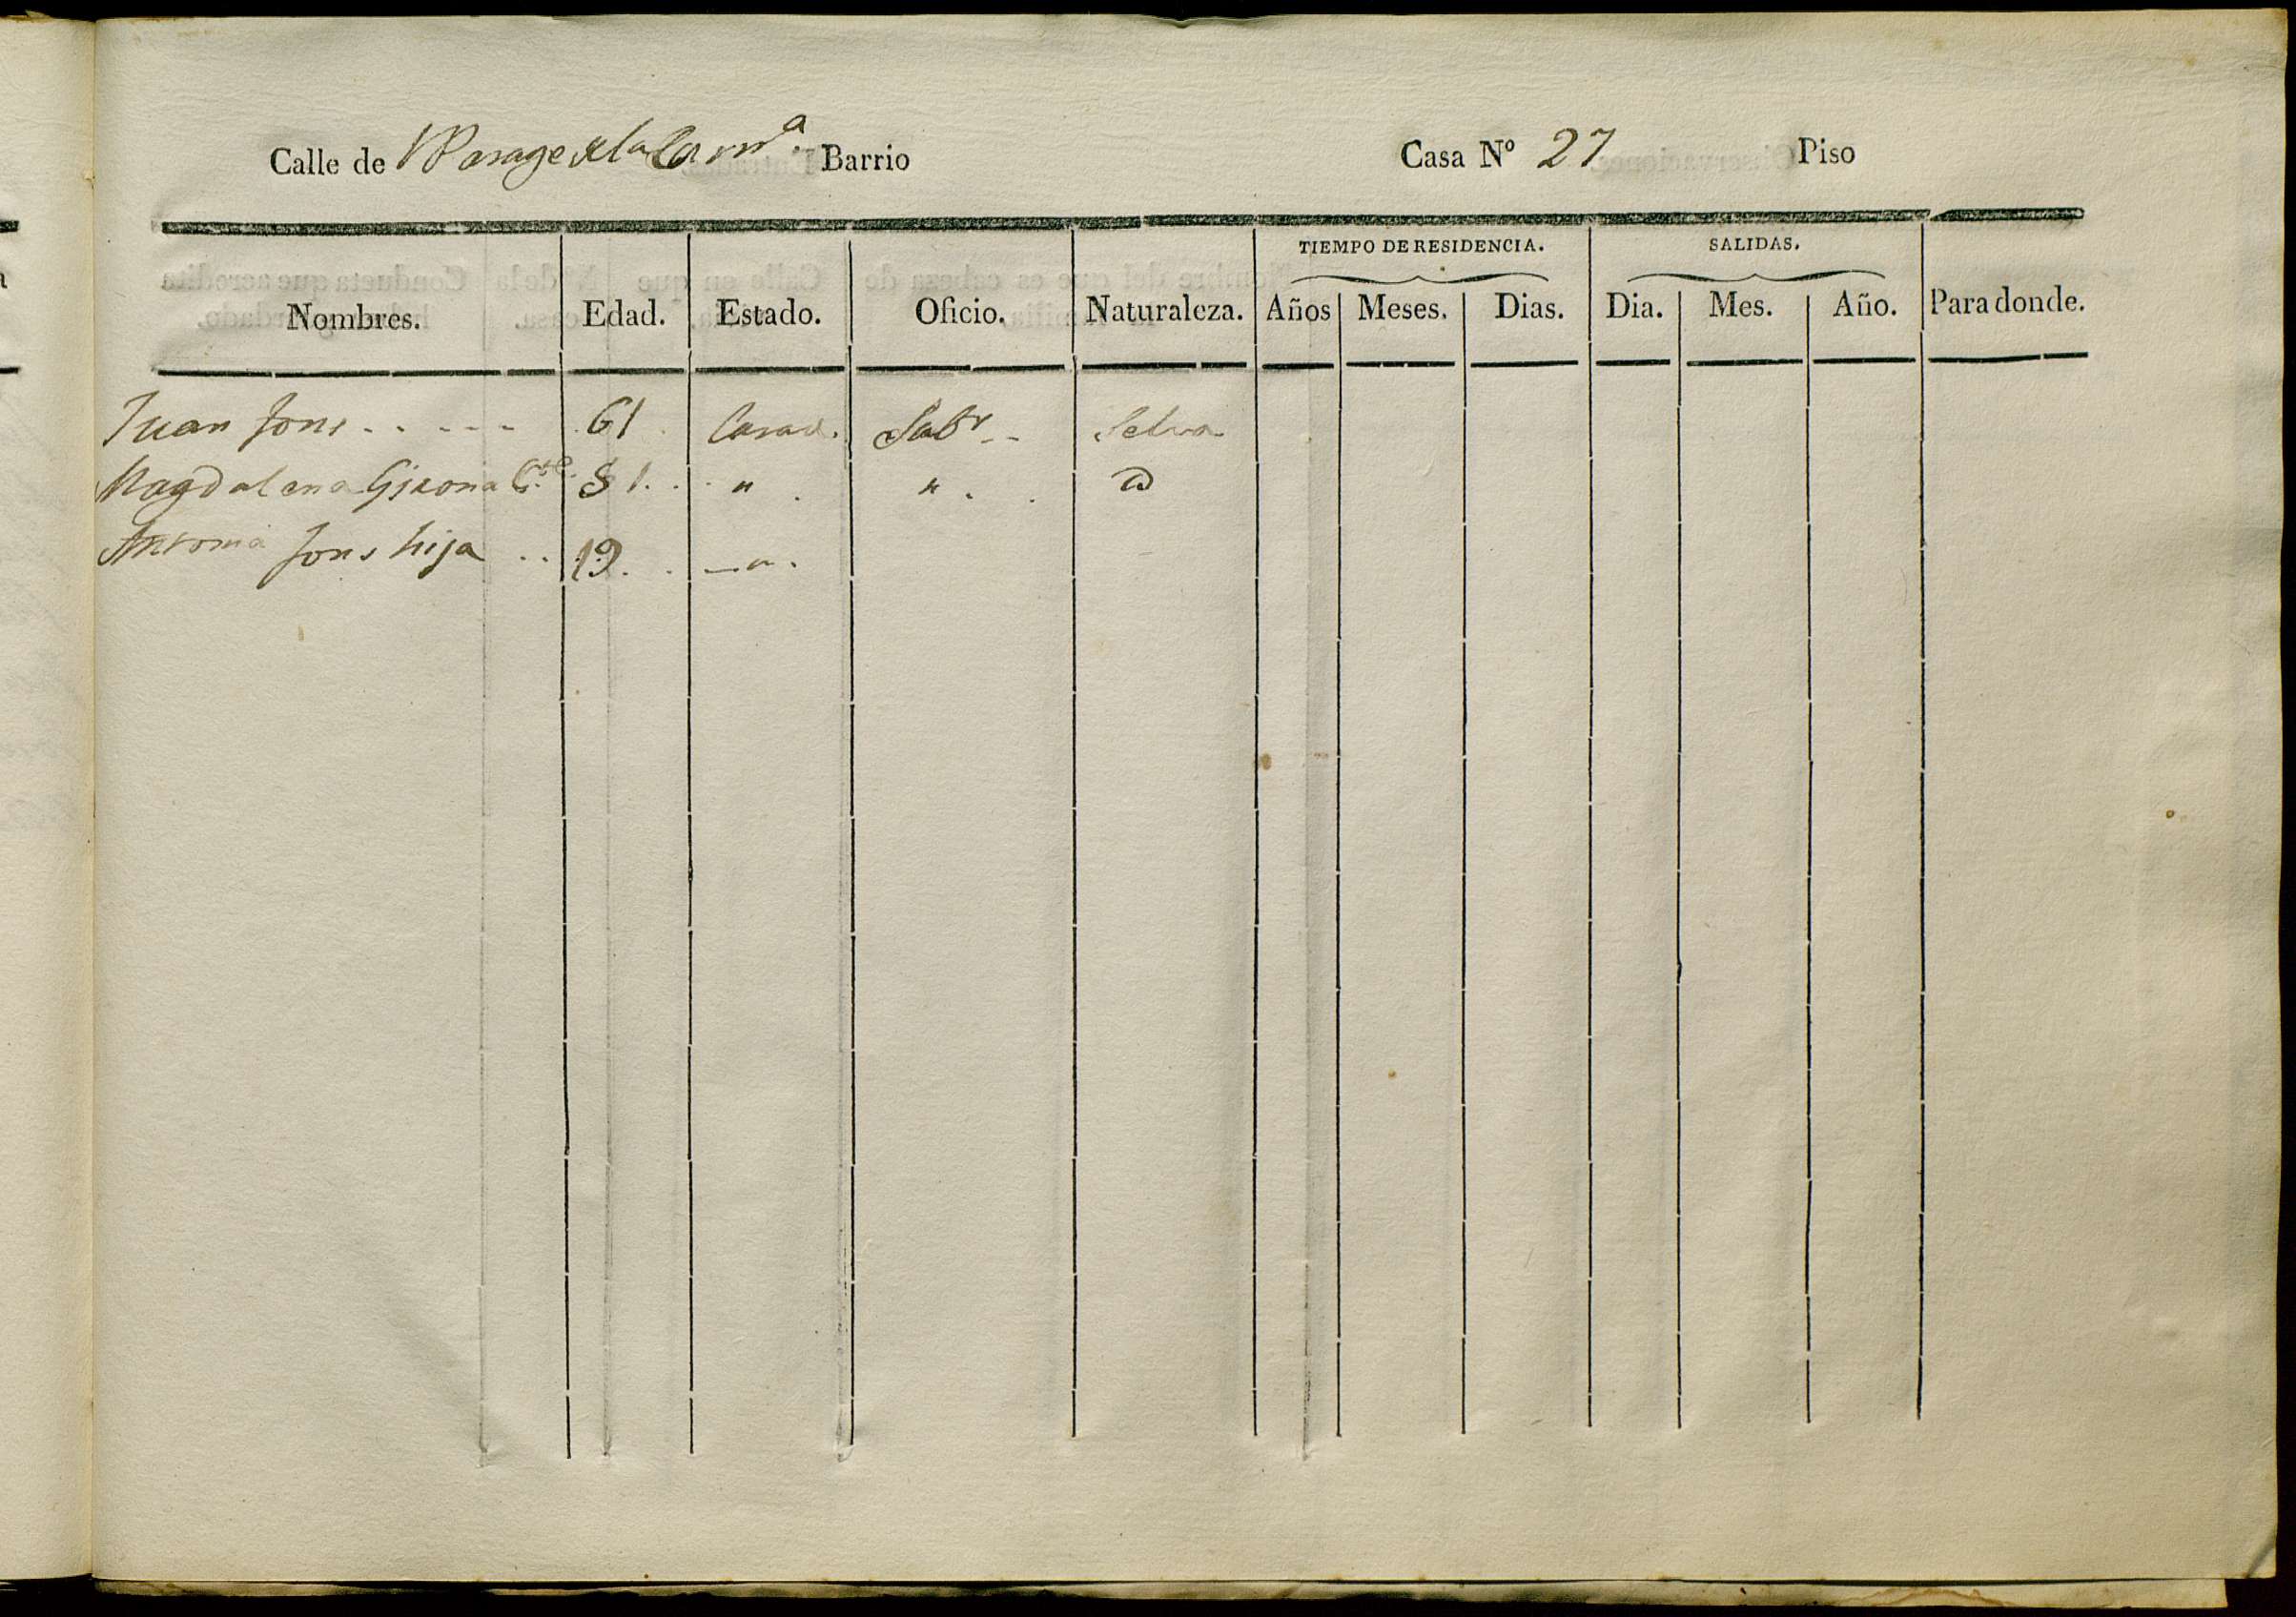 Calle de Parage de la Barrio Casa Nº 27 Piso
TIEMPO DE RESIDENCIA. SALIDAS.
Nombres. Edad. Estado. Oficio. Naturaleza. Años Meses. Dias. Dia. Mes. Año. Para donde.
Juan Fons - - - - - 61 Casad. Labr - - Selva
Magdalena Girona 51 . . " . " . . D
Antonia Fons hija . . 19 . . — " .